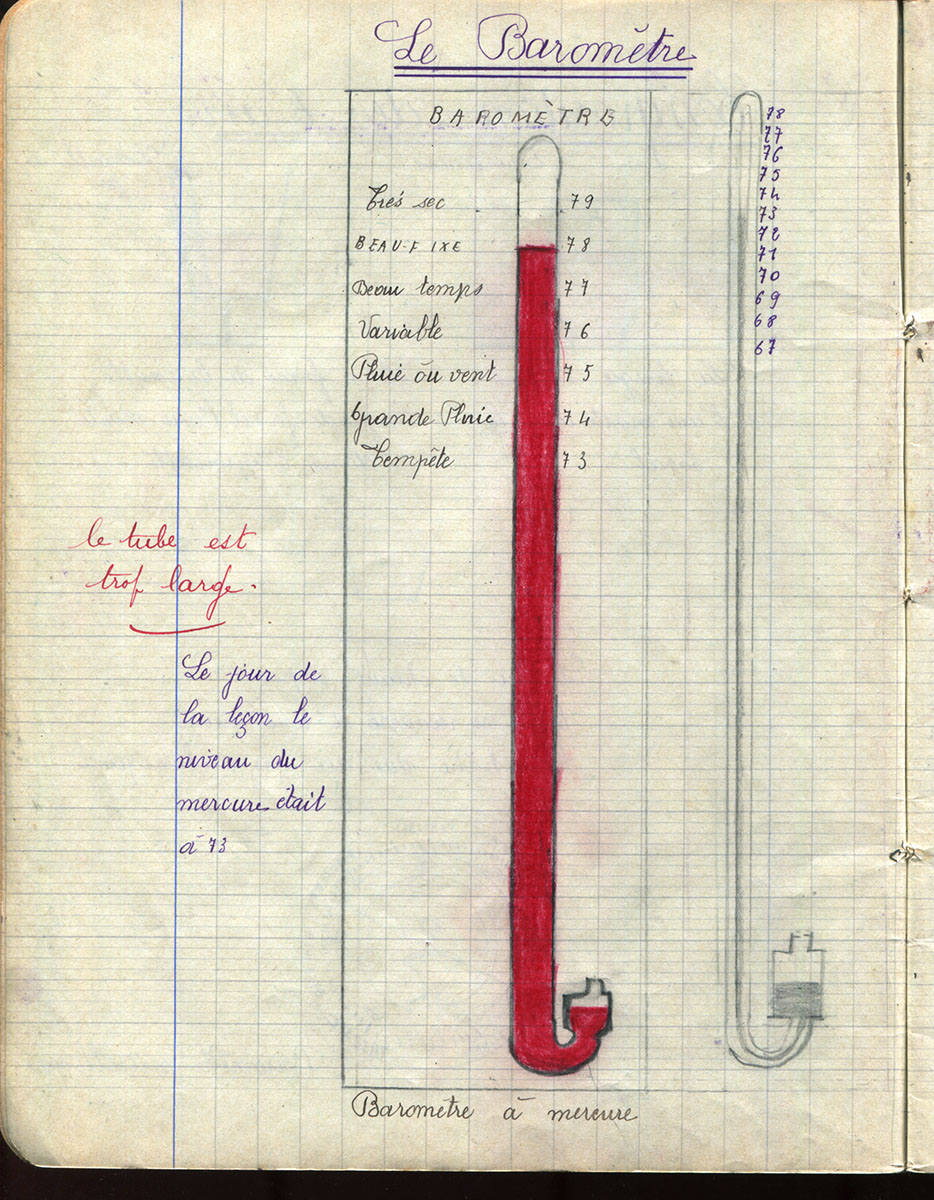 Le Baromètre
BAROMÈTRE
Très sec 79
BEAU-FIXE 78
Beau temps 77
Variable 76
Pluie ou vent 75
Grande Pluie 74
Tempête 73
78
77
76
75
74
73
72
71
70
69
68
67
le tube est
trop large.
Le jour de
la leçon le
niveau du
mercure était
à 73
Baromètre à mercure